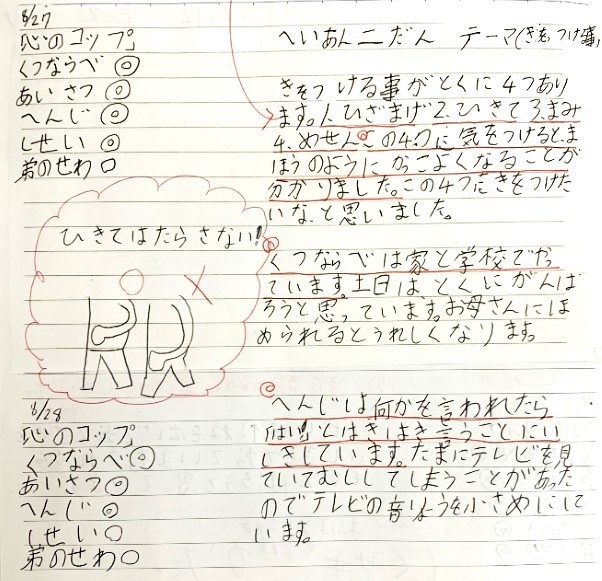 8/27
「心のコップ」
くつならべ ◎
あいさつ ◎
へんじ ◎
しせい ◎
弟のせわ ○
ひきてはたらさない!
へいあん二だん テーマ(きをつけ事)
きをつける事がとくに4つあり
ます。1.ひざまげ2.ひきて3.まみ
4.めせんこの4つに気をつけると、ま
ほうのようにかっこよくなることが
分かりました。この4つにきをつけた
いな、と思いました。
くつならべは家と学校でやっ
ています。土日はとくにがんば
ろうと思っています。お母さんにほ
められるとうれしくなります。
8/28
「心のコップ」
くつならべ◎
あいさつ◎
へんじ ◎
しせい○
弟のせわ○
へんじは何かを言われたら
「はい!」とはきはき言うことにい
しきしています。たまにテレビを見
ていてむししてしまうことがあった
のでテレビの音りょうを小さめにして
います。